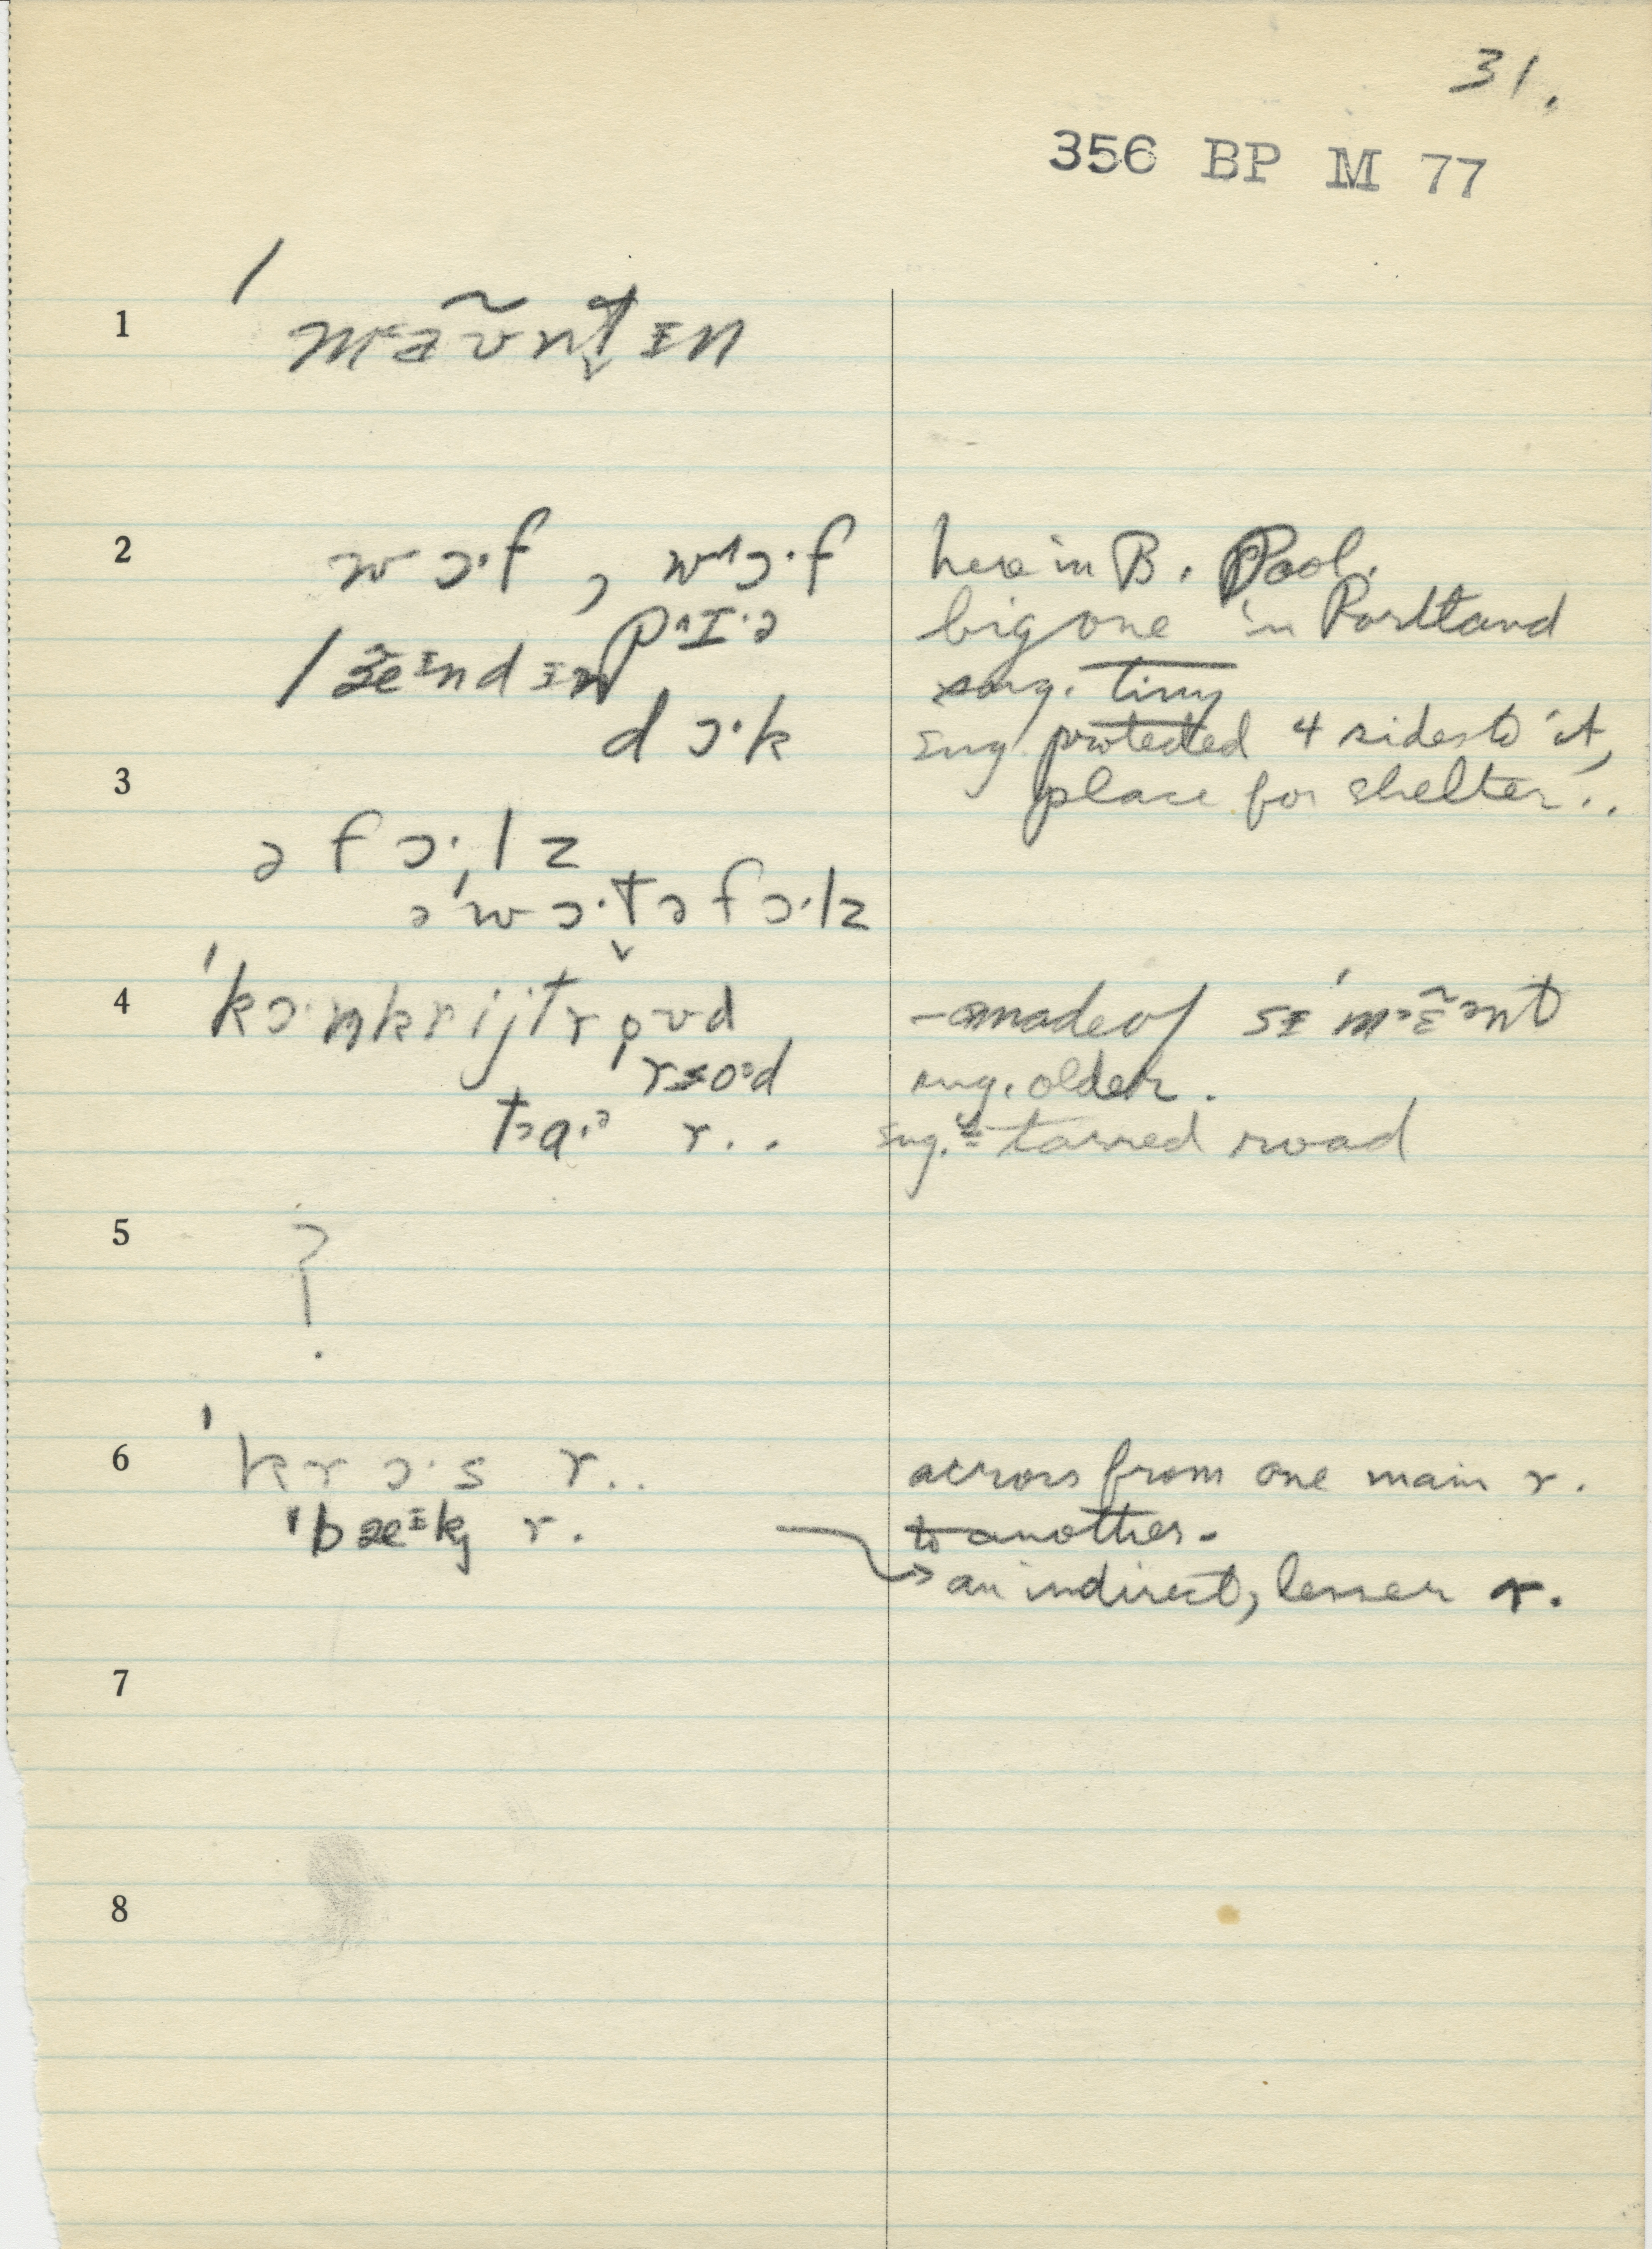 31.
356 BP M 77
1 ˈmaũnt̬ɪn
2 wɔ·f , wʌɔ·f here in B. Pool.
pʌɪ·ə big one in Portland
sug. tiny
dɔ·k sug. protected 4 sides to it,
3 place for shelter..
ə fɔ·lz
ə ˈwɔ·t̬ə fɔ·lz
4 ˈkɔ·ŋkrijt roʊd – made of sɪˈmɛ̃ənt
sug. older.
r.. sug. = tarred road
5 ?
6 ˈkrɔ·s r.. across from one main r.
r. to another.
→ an indirect, lesser r.
7
8